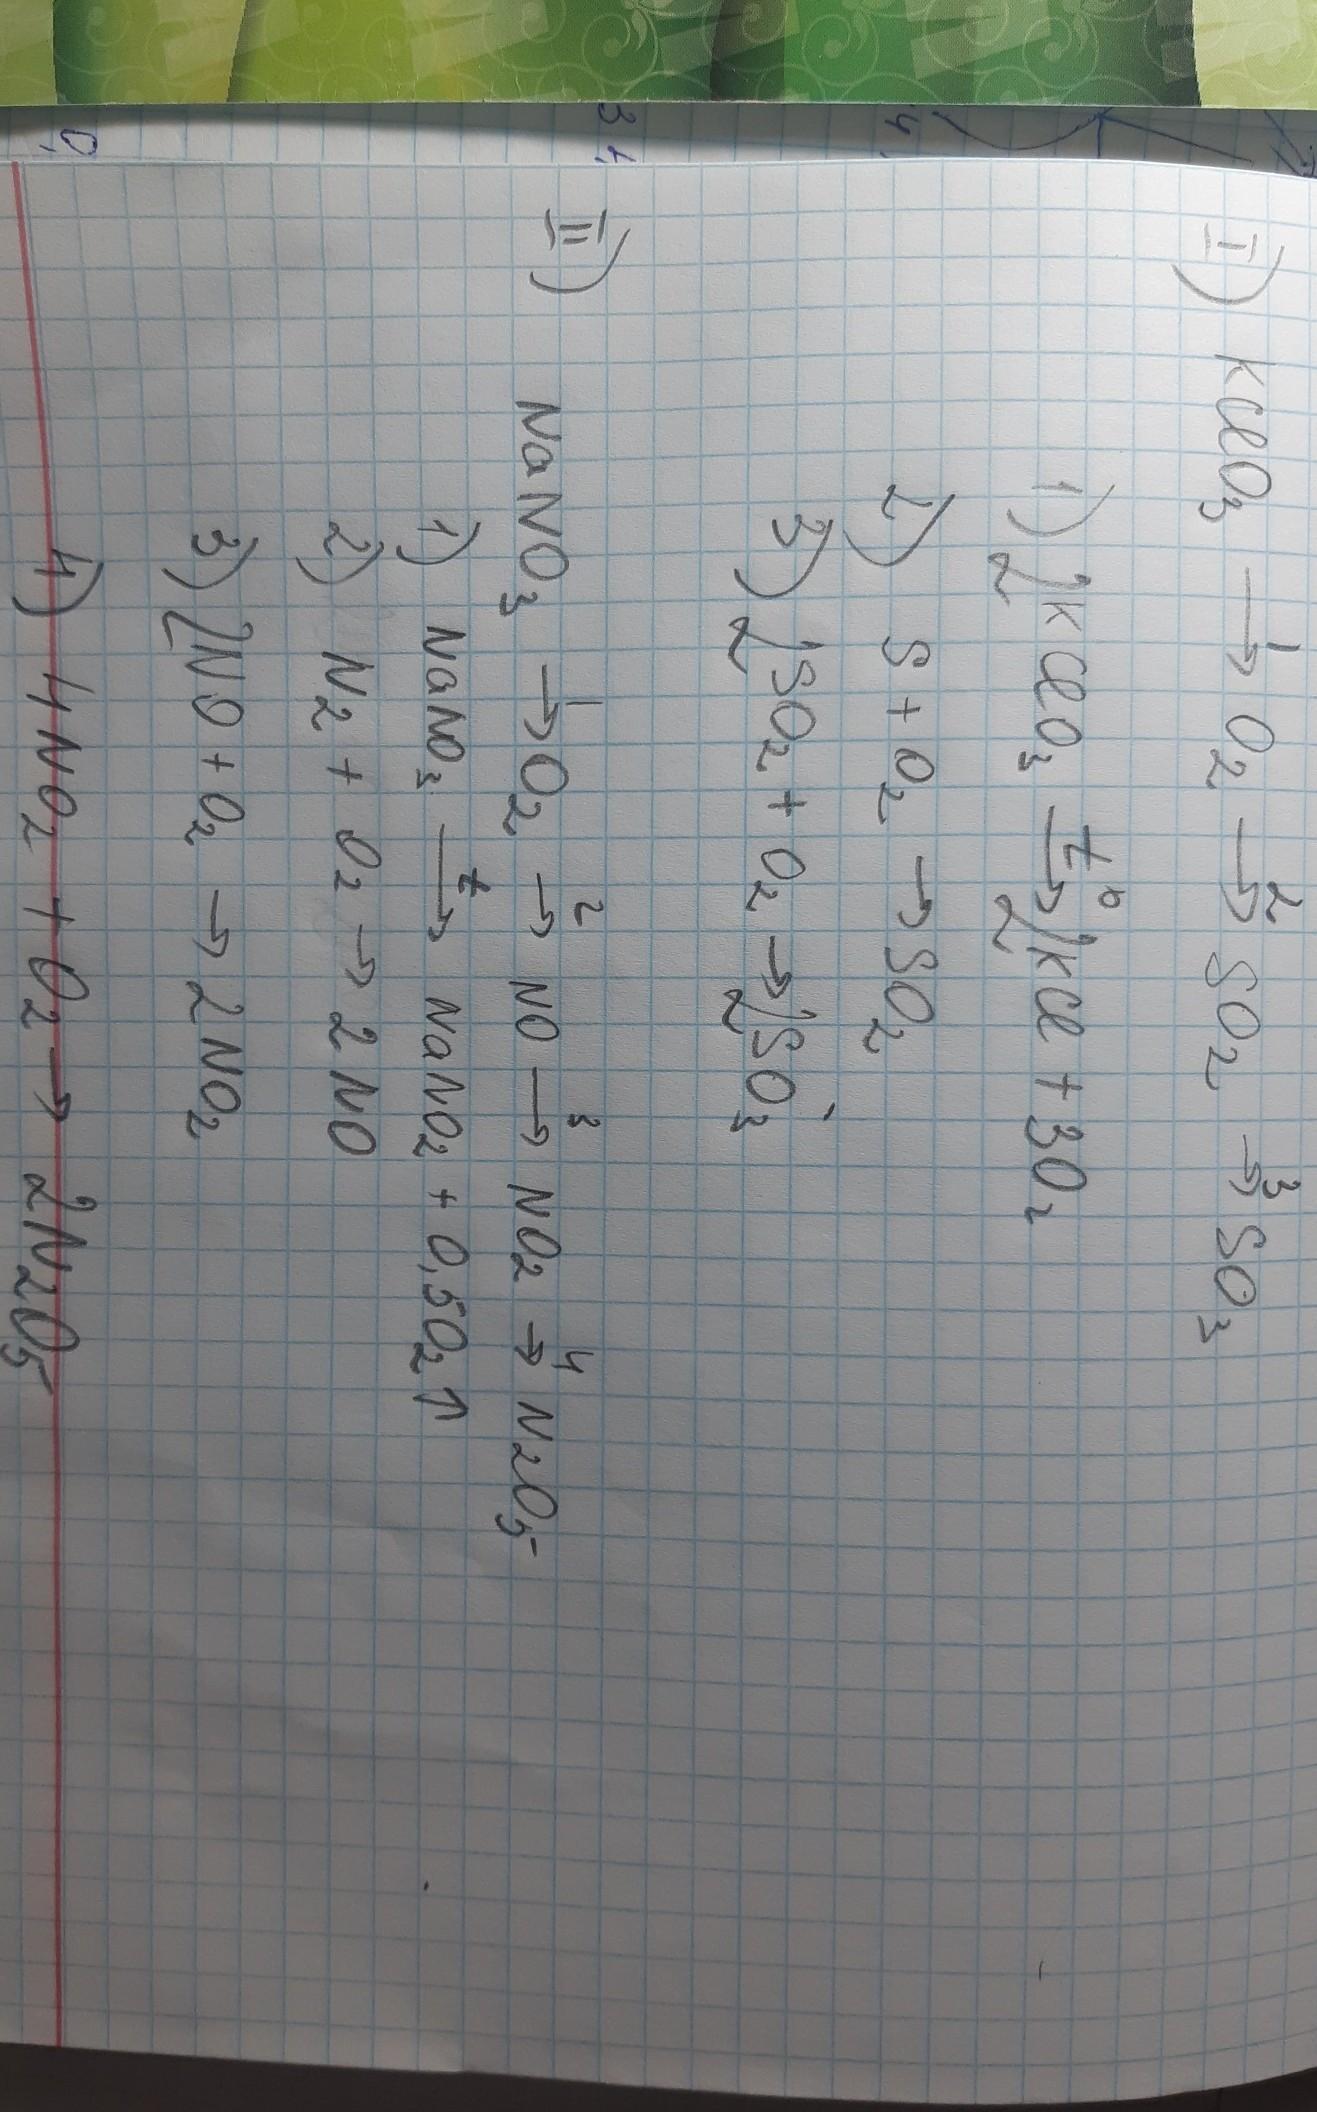 I) KClO₃ →¹ O₂ →² SO₂ →³ SO₃
1) 2KClO₃ →t° 2KCl + 3O₂
2) S + O₂ → SO₂
3) 2SO₂ + O₂ → 2SO₃
II) NaNO₃ →¹ O₂ →² NO →³ NO₂ →⁴ N₂O₅
1) NaNO₃ →t NaNO₂ + 0,5O₂↑
2) N₂ + O₂ → 2NO
3) 2NO + O₂ → 2NO₂
4) 4NO₂ + O₂ → 2N₂O₅